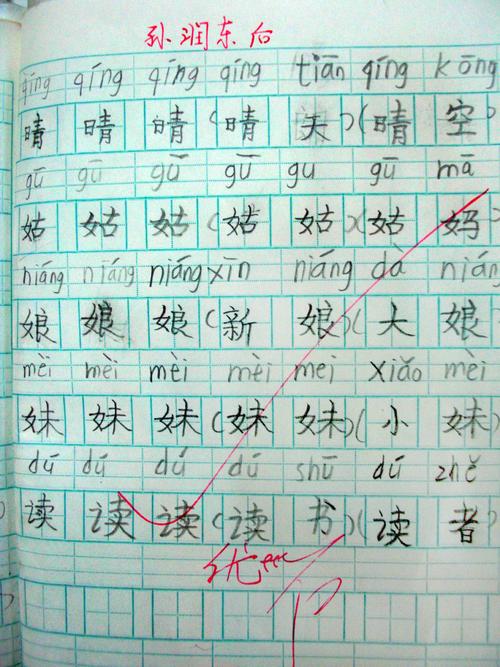 孙润东后
qíng qíng qíng qíng tiān qíng kōng
晴 晴 晴 (晴 天)(晴 空)
gū gū gū gū gu gū mā
姑 姑 姑 (姑 姑)(姑 妈)
niáng niáng niáng xīn niáng dà niáng
娘 娘 娘 (新 娘)(大 娘)
mèi mèi mèi mèi mei xiǎo mèi
妹 妹 妹 (妹 妹)(小 妹)
dú dú dú dú shū dú zhě
读 读 读 (读 书)(读 者)
优